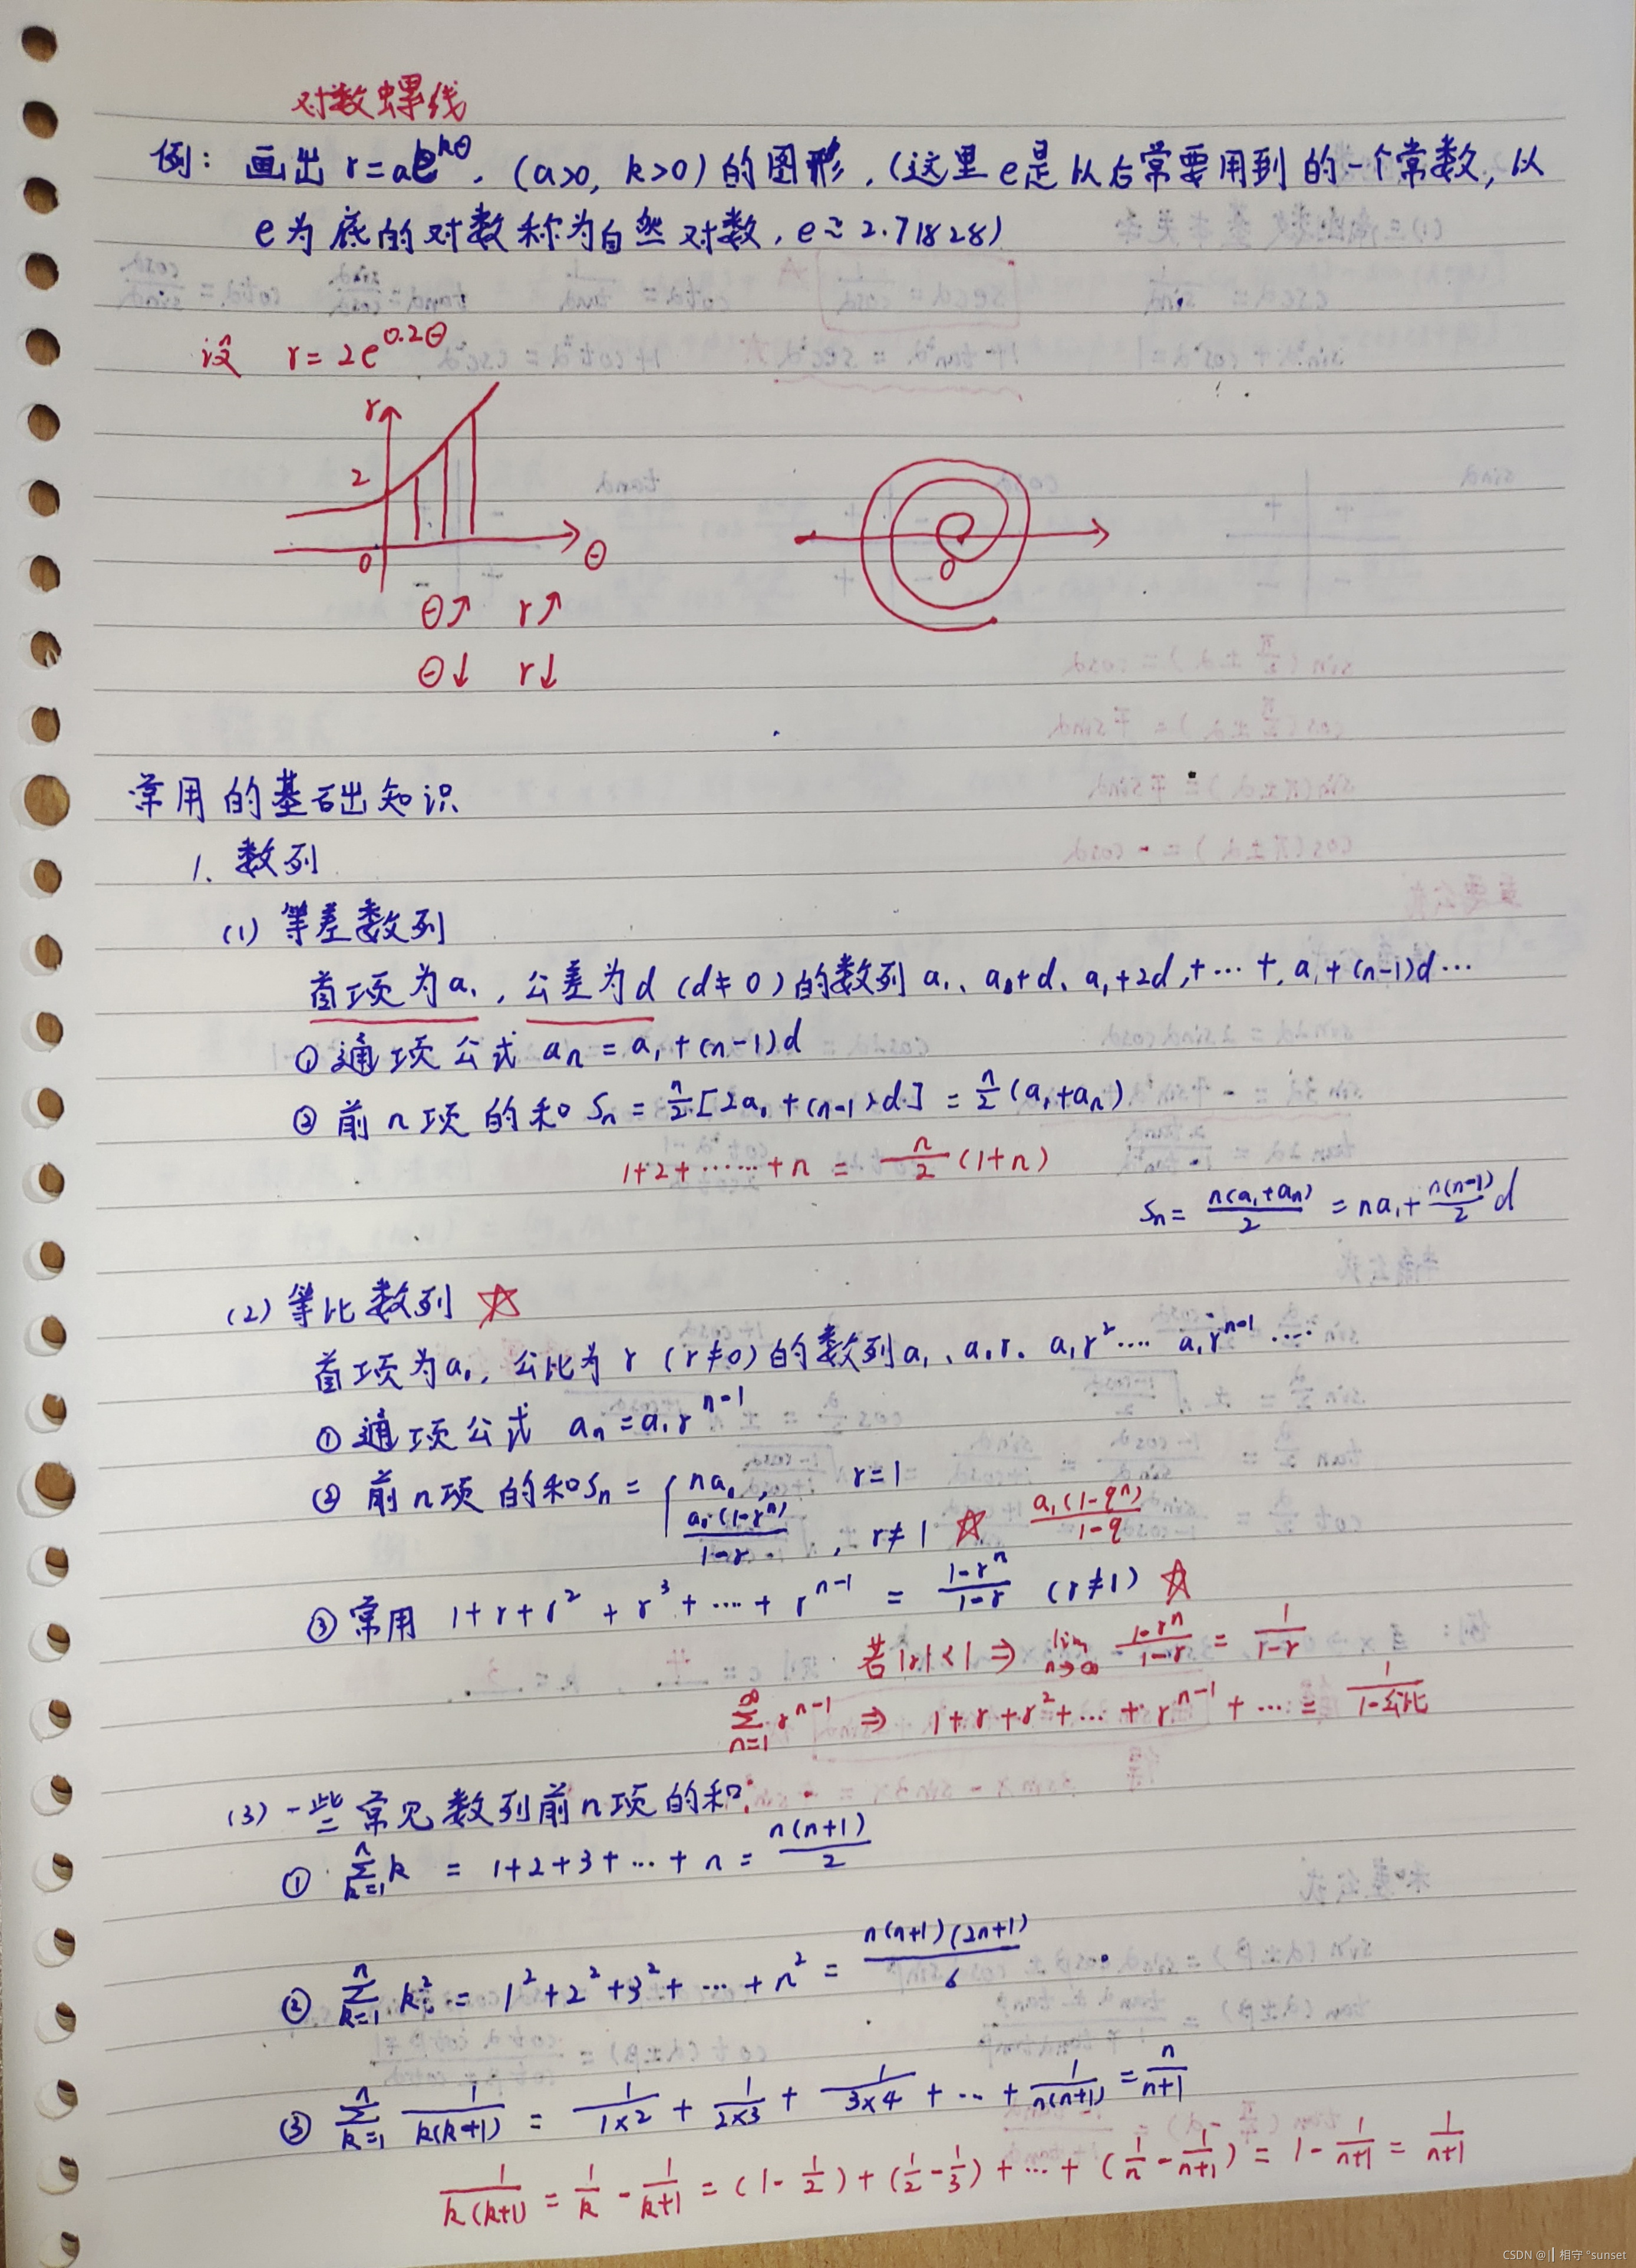 对数螺线
例：画出 r=ae^{kθ}，(a>0, k>0)的图形，(这里e是以后常要用到的一个常数，以
e为底的对数称为自然对数，e≈2.71828)
设 r=2e^{0.2θ}
r
2
0
θ
0
θ↗ r↗
θ↓ r↓
常用的基础知识
1. 数列
(1) 等差数列
首项为a₁，公差为d (d≠0)的数列 a₁、a₁+d、a₁+2d,+…+, a₁+(n-1)d…
① 通项公式 aₙ=a₁+(n-1)d
② 前n项的和 Sₙ = n/2[2a₁+(n-1)d] = n/2(a₁+aₙ)
1+2+……+n = n/2 (1+n)
Sₙ= n(a₁+aₙ)/2 = na₁+ n(n-1)/2 d
(2) 等比数列 ☆
首项为a₁，公比为 r (r≠0)的数列a₁、a₁r、a₁r²…. a₁r^{n-1} ….
① 通项公式 aₙ=a₁r^{n-1}
② 前n项的和Sₙ= { na₁, r=1
a₁(1-rⁿ)/1-r , r≠1 ☆ a₁(1-qⁿ)/1-q
③ 常用 1+r+r²+r³+….+r^{n-1} = 1-rⁿ/1-r (r≠1) ☆
若|r|<1 ⇒ lim n→∞ 1-rⁿ/1-r = 1/1-r
∑_{n=1}^{∞} r^{n-1} ⇒ 1+r+r²+…+r^{n-1}+… = 1/1-公比
(3) 一些常见数列前n项的和:
① ∑_{k=1}^{n} k = 1+2+3+…+n = n(n+1)/2
② ∑_{k=1}^{n} k² = 1²+2²+3²+…+n² = n(n+1)(2n+1)/6
③ ∑_{k=1}^{n} 1/k(k+1) = 1/1×2 + 1/2×3 + 1/3×4 + … + 1/n(n+1) = n/n+1
1/k(k+1) = 1/k - 1/k+1 = (1-1/2)+(1/2-1/3)+…+(1/n-1/n+1) = 1-1/n+1 = 1/n+1
CSDN @|▎相守 °sunset